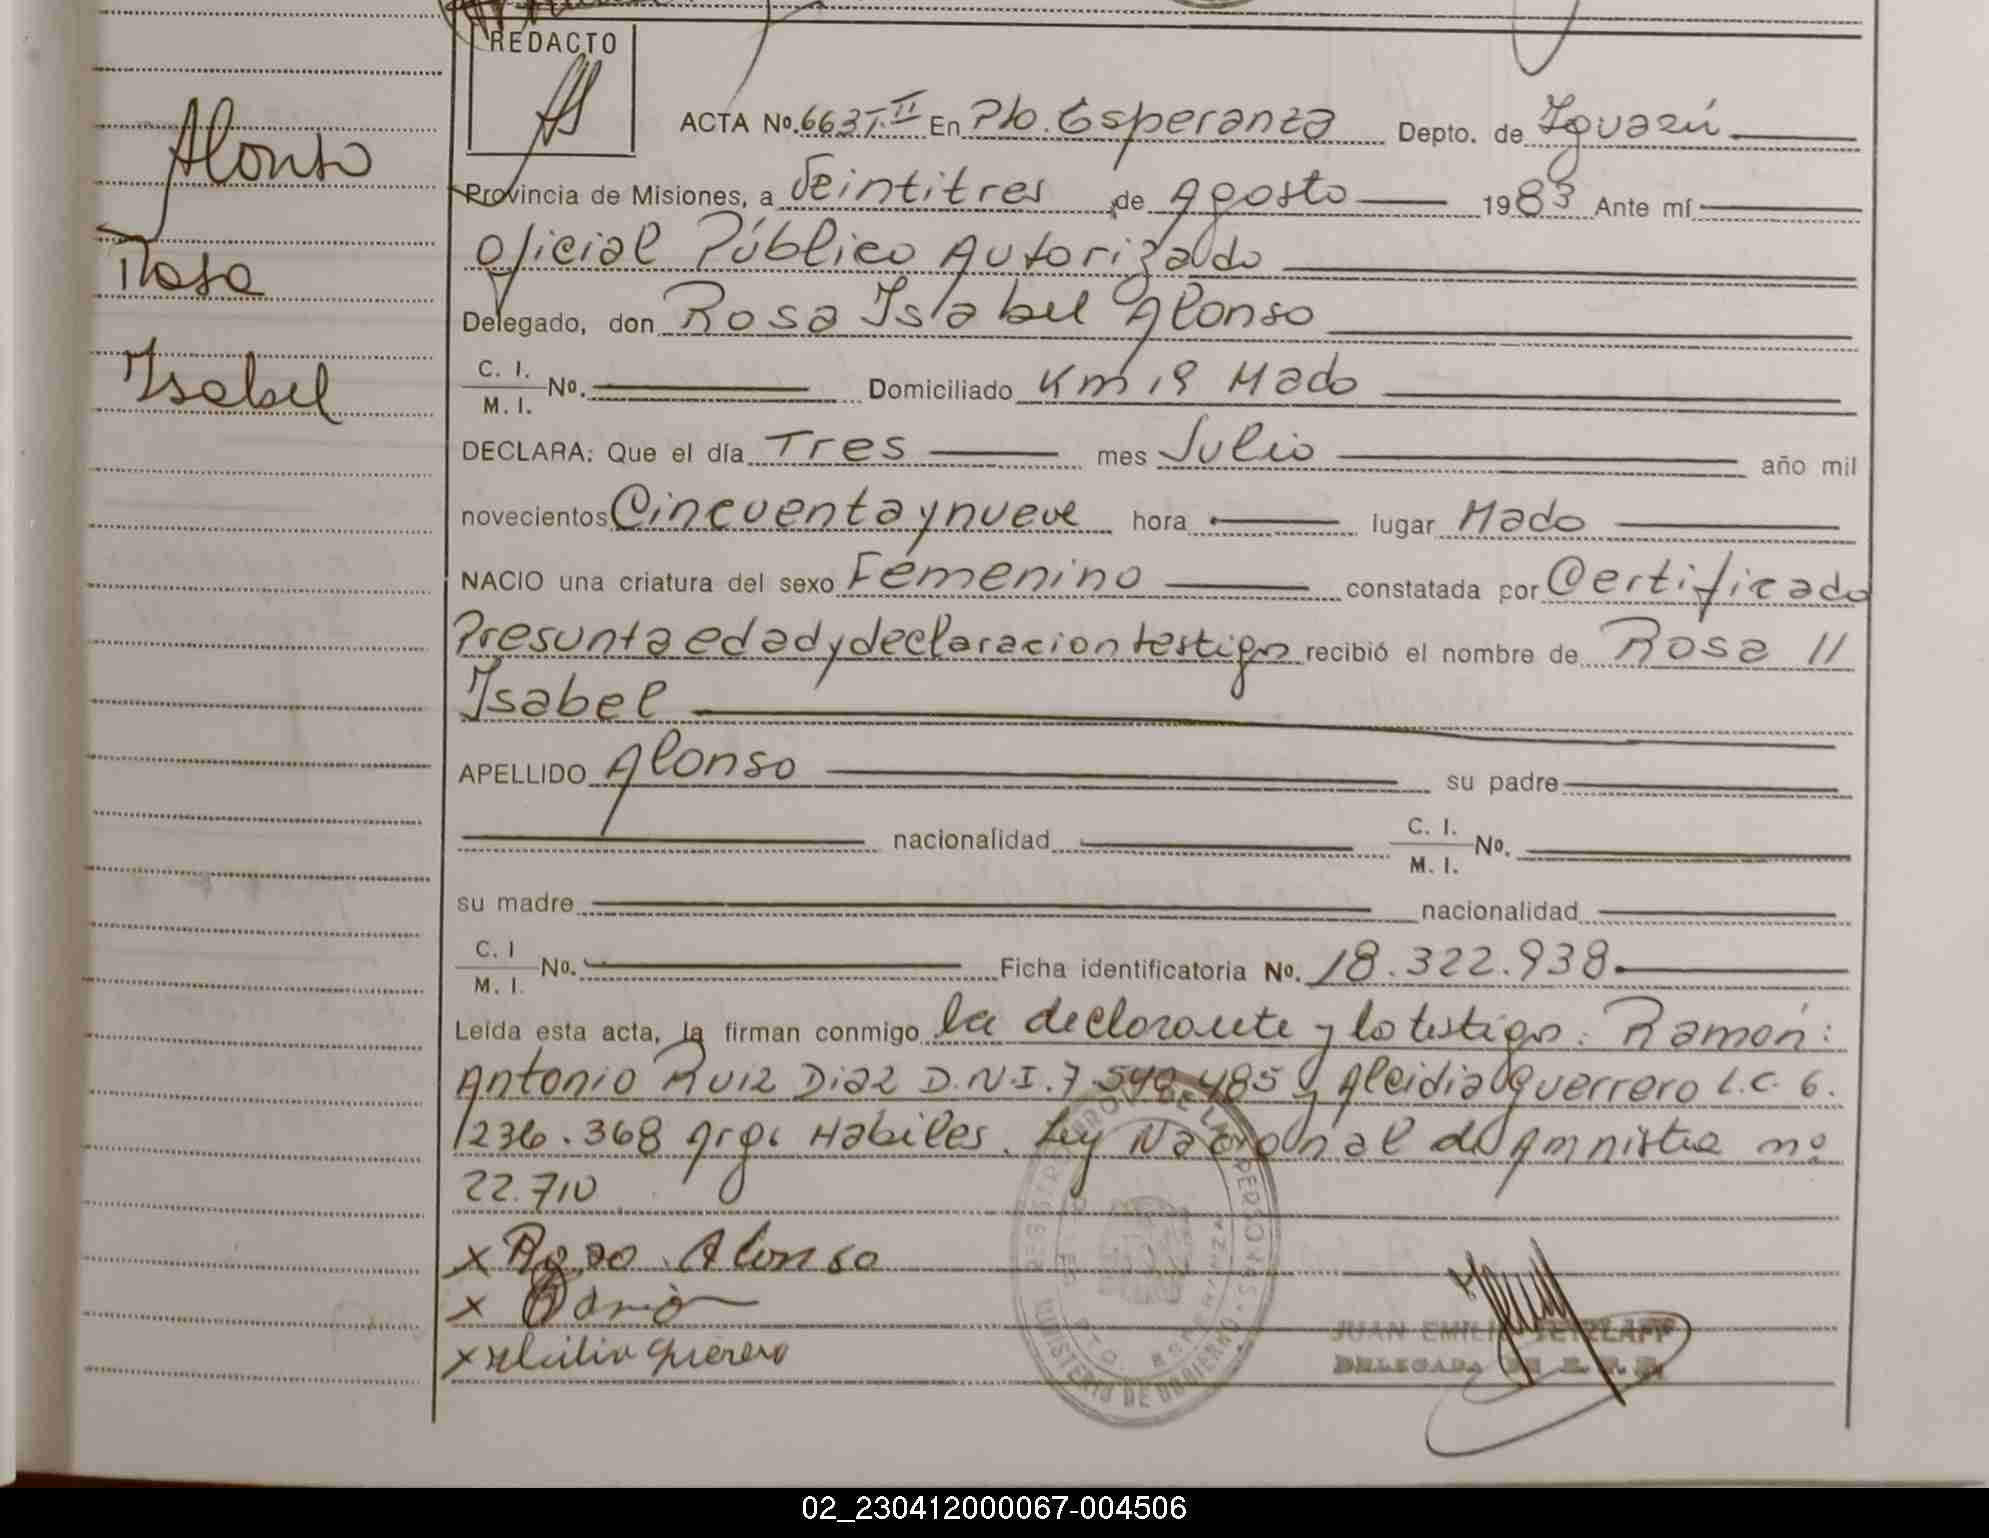 REDACTO
Alonso
Rosa
Isabel
ACTA Nº. 663 T. II En Pto. Esperanza Depto. de Iguazú
Provincia de Misiones, a Veintitres de Agosto 1983 Ante mí
Oficial Público Autorizado
Delegado, don Rosa Isabel Alonso
C. I.
M. I. Nº. Domiciliado Km 19 Mado
DECLARA: Que el día Tres mes Julio año mil
novecientos Cincuenta y nueve hora lugar Mado
NACIO una criatura del sexo Femenino constatada por Certificado
Presunta edad y declaracion testigo recibió el nombre de Rosa //
Isabel
APELLIDO Alonso su padre
nacionalidad C. I.
M. I. Nº.
su madre nacionalidad
C. I
M. I. Nº. Ficha identificatoria Nº. 18.322.938.
Leida esta acta, la firman conmigo la declarante y lo testigo: Ramón:
Antonio Ruiz Diaz D.N.I. 7.548.485 y Alcidia Guerrero L.C. 6.
236.368 Arg. Habiles. Ley Nacional de Amnistia nº
22.710
x Rosa Alonso
x Ramón
x Guerrero
REGISTRO PROV. DE LAS PERSONAS
MINISTERIO DE GOBIERNO
PTO. ESPERANZA
JUAN EMILIO TETZLAFF
DELEGADA DE R. P. P.
02_230412000067-004506